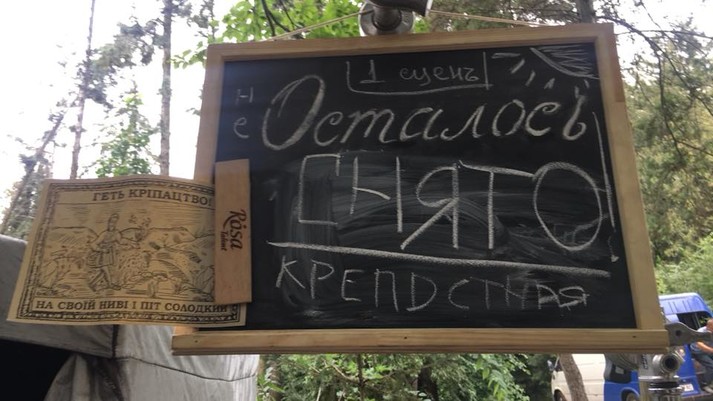 1 сценъ
не Осталось
СНЯТО
КРЕПОСТНАЯ
ГЕТЬ КРІПАЦТВО!
НА СВОЇЙ НИВІ І ПІТ СОЛОДКИЙ
Rosa